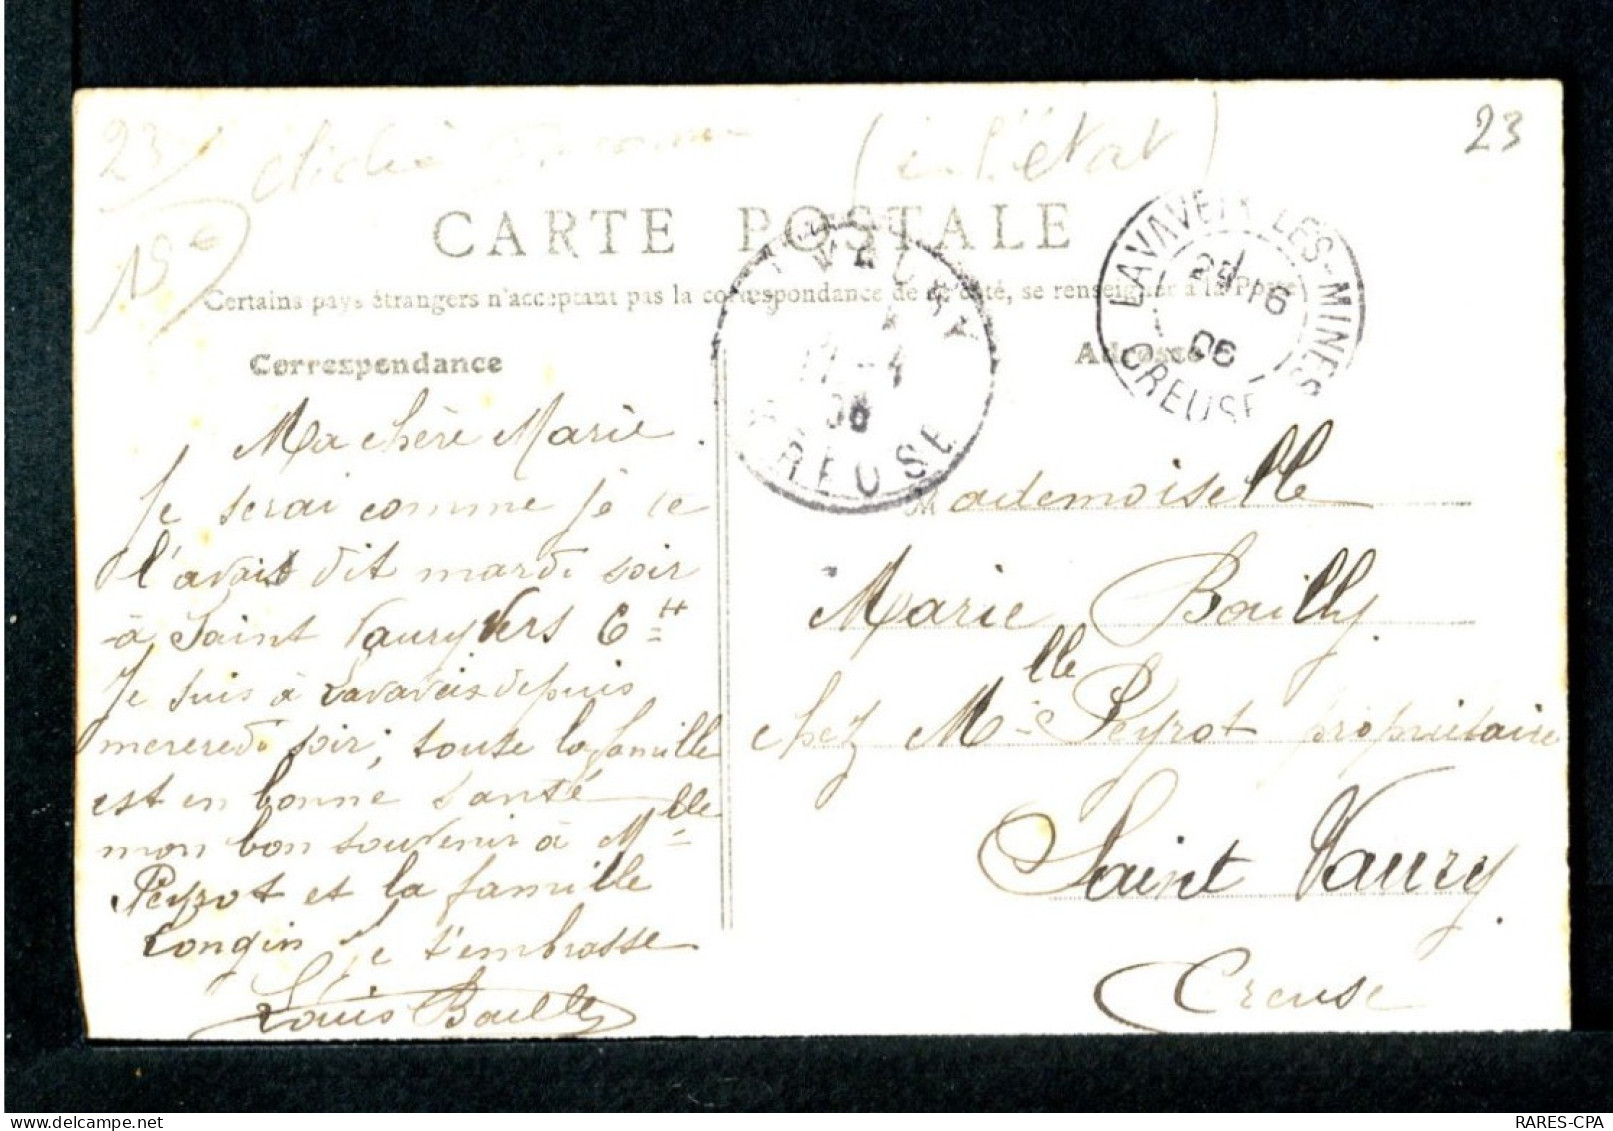 23
23
15€
cliché
(en l'état)
CARTE POSTALE
Certains pays étrangers n'acceptant pas la correspondance de ce côté, se renseigner à la Poste
Correspondance
Adresse
LAVAVEIX-LES-MINES
06
CREUSE
ST VAURY
06
CREUSE
Ma chère Marie
Je serai comme je te
l'avait dit mardi soir
à Saint Vaury vers 6 H
Je suis à Lavaveix depuis
mercredi soir; toute la famille
est en bonne santé
mon bon souvenir à Mlle
Peyrot et la famille
Longin Je t'embrasse
Louis Bailly
Mademoiselle
Marie Bailly
chez Mlle Peyrot propriétaire
Saint Vaury.
Creuse
RARES-CPA